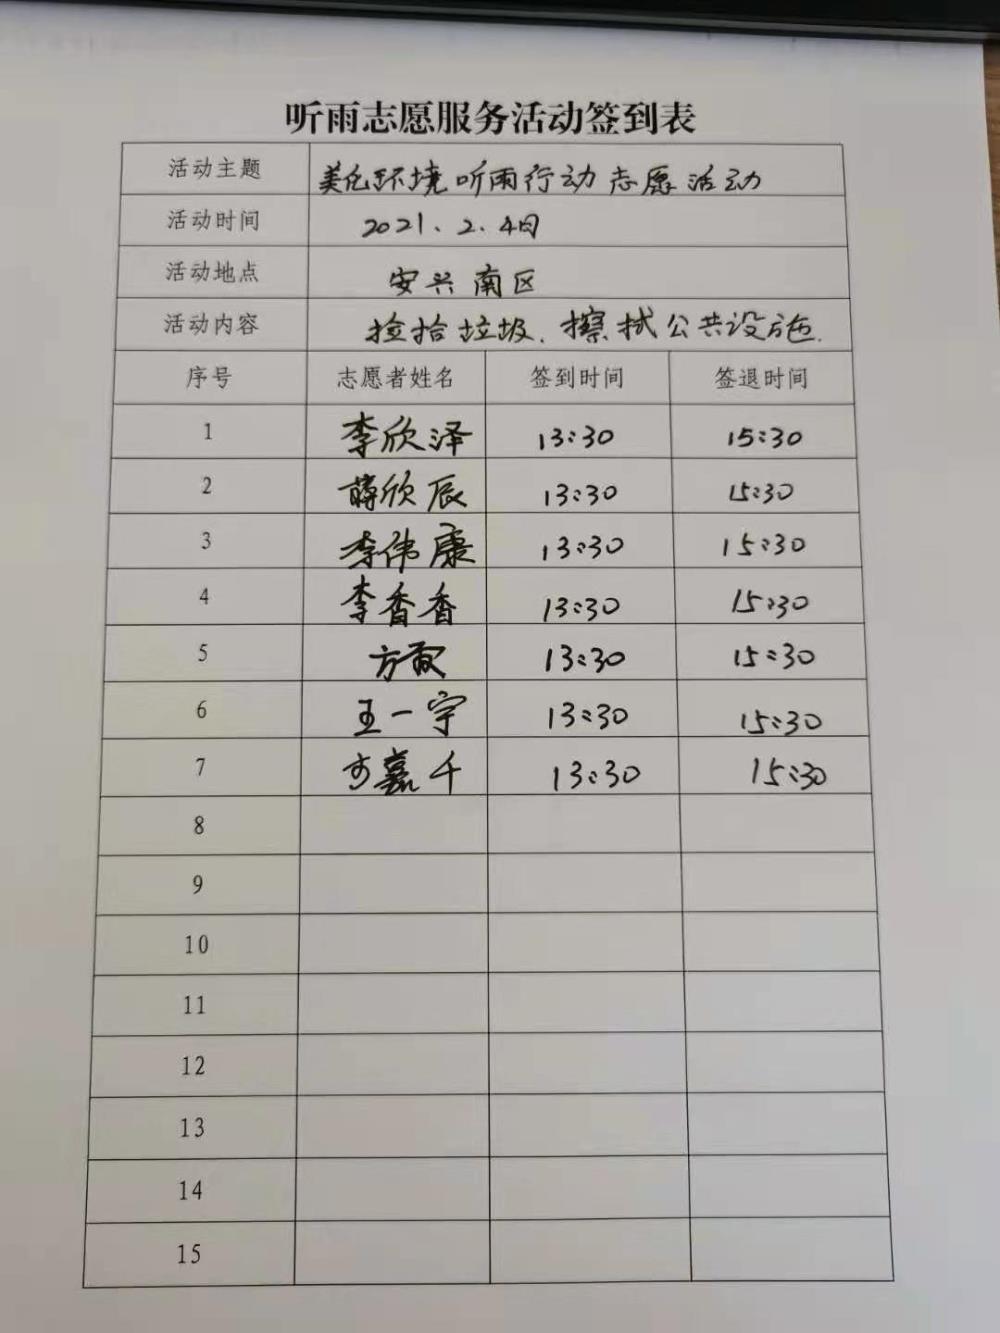 听雨志愿服务活动签到表
活动主题 美化环境听雨行动志愿活动
活动时间 2021.2.4日
活动地点 安兴南区
活动内容 捡拾垃圾、擦拭公共设施.
序号 志愿者姓名 签到时间 签退时间
1 李欣泽 13:30 15:30
2 蒋欣辰 13:30 15:30
3 李伟康 13:30 15:30
4 李香香 13:30 15:30
5 方 13:30 15:30
6 王一宇 13:30 15:30
7 嘉千 13:30 15:30
8
9
10
11
12
13
14
15